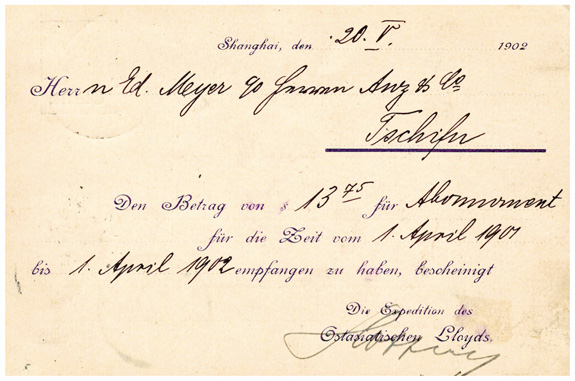 Shanghai, den 20. V. 1902
Herrn Ed. Meyer c/o Herren Anz & Co
Tschifu
Den Betrag von $ 13 75 für Abonnement
für die Zeit vom 1. April 1901
bis 1. April 1902 empfangen zu haben, bescheinigt
Die Expedition des
Ostasiatischen Lloyds.